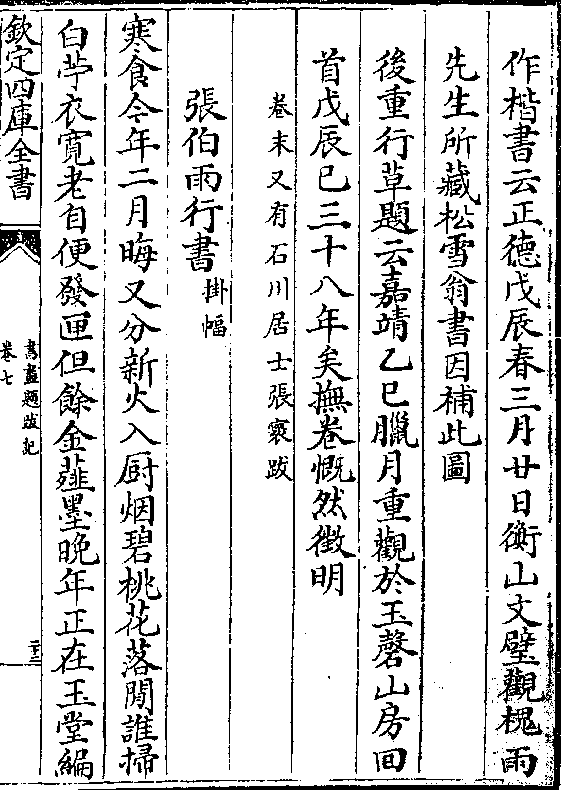 作楷書云正德戊辰春三月廿日衡山文璧觀槐雨
先生所藏松雪翁書因補此圖
後重行草題云嘉靖乙巳臘月重觀於玉磬山房回
首戊辰已三十八年矣撫卷慨然徵明
卷末又有石川居士張寰跋
張伯雨行書掛幅
寒食今年二月晦又分新火入厨烟碧桃花落閒誰掃
白苧衣寛老自便發匣但餘金薤墨晚年正在玉堂編
欽定四庫全書
書畫題跋記
卷七
二十三